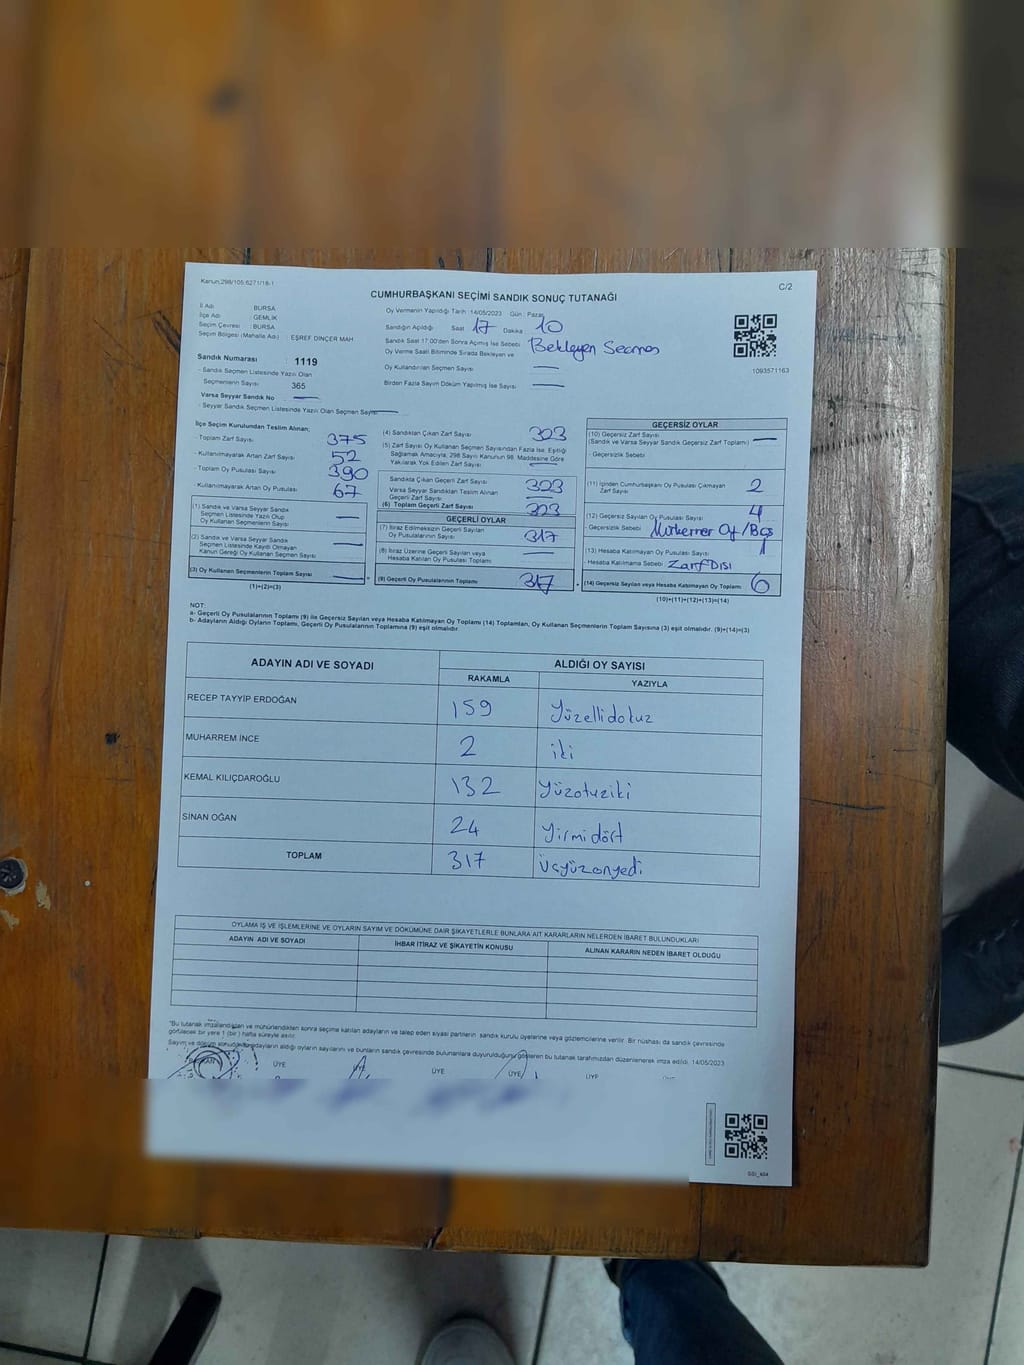 Kanun;298/105;6271/18-1
C/2
CUMHURBAŞKANI SEÇİMİ SANDIK SONUÇ TUTANAĞI
İl Adı : BURSA
İlçe Adı : GEMLİK
Seçim Çevresi : BURSA
Seçim Bölgesi (Mahalle Adı) : EŞREF DİNÇER MAH
Sandık Numarası : 1119
- Sandık Seçmen Listesinde Yazılı Olan
Seçmenlerin Sayısı : 365
Varsa Seyyar Sandık No
- Seyyar Sandık Seçmen Listesinde Yazılı Olan Seçmen Sayısı
Oy Vermenin Yapıldığı Tarih : 14/05/2023 Gün : Pazar
Sandığın Açıldığı Saat 17 Dakika : 10
Sandık Saat 17:00'den Sonra Açılmış İse Sebebi Bekleyen Seçmen
Oy Verme Saati Bitiminde Sırada Bekleyen ve
Oy Kullandırılan Seçmen Sayısı
Birden Fazla Sayım Döküm Yapılmış İse Sayısı
1093571163
İlçe Seçim Kurulundan Teslim Alınan;
- Toplam Zarf Sayısı 375
- Kullanılmayarak Artan Zarf Sayısı 52
- Toplam Oy Pusulası Sayısı 390
- Kullanılmayarak Artan Oy Pusulası 67
(1) Sandık ve Varsa Seyyar Sandık
Seçmen Listesinde Yazılı Olup
Oy Kullanan Seçmenlerin Sayısı
(2) Sandık ve Varsa Seyyar Sandık
Seçmen Listesinde Kaydı Olmayan
Kanun Gereği Oy Kullanan Seçmen Sayısı
(3) Oy Kullanan Seçmenlerin Toplam Sayısı
(1)+(2)=(3)
(4) Sandıktan Çıkan Zarf Sayısı 323
(5) Zarf Sayısı Oy Kullanan Seçmen Sayısından Fazla İse, Eşitliği
Sağlamak Amacıyla, 298 Sayılı Kanunun 98. Maddesine Göre
Yakılarak Yok Edilen Zarf Sayısı
Sandıkta Çıkan Geçerli Zarf Sayısı 323
Varsa Seyyar Sandıktan Teslim Alınan
Geçerli Zarf Sayısı
(6) Toplam Geçerli Zarf Sayısı 323
GEÇERLİ OYLAR
(7) İtiraz Edilmeksizin Geçerli Sayılan
Oy Pusulalarının Sayısı 317
(8) İtiraz Üzerine Geçerli Sayılan veya
Hesaba Katılan Oy Pusulası Toplamı
(9) Geçerli Oy Pusulalarının Toplamı 317
GEÇERSİZ OYLAR
(10) Geçersiz Zarf Sayısı
(Sandık ve Varsa Seyyar Sandık Geçersiz Zarf Toplamı)
- Geçersizlik Sebebi
(11) İçinden Cumhurbaşkanı Oy Pusulası Çıkmayan
Zarf Sayısı 2
(12) Geçersiz Sayılan Oy Pusulası Sayısı 4
- Geçersizlik Sebebi Mükerrer Oy/Boş
(13) Hesaba Katılmayan Oy Pusulası Sayısı
- Hesaba Katılmama Sebebi Zarf Dışı
(14) Geçersiz Sayılan veya Hesaba Katılmayan Oy Toplamı 6
(10)+(11)+(12)+(13)=(14)
NOT:
a- Geçerli Oy Pusulalarının Toplamı (9) ile Geçersiz Sayılan veya Hesaba Katılmayan Oy Toplamı (14) Toplamları, Oy Kullanan Seçmenlerin Toplam Sayısına (3) eşit olmalıdır. (9)+(14)=(3)
b- Adayların Aldığı Oyların Toplamı, Geçerli Oy Pusulalarının Toplamına (9) eşit olmalıdır.
ADAYIN ADI VE SOYADI
ALDIĞI OY SAYISI
RAKAMLA YAZIYLA
RECEP TAYYİP ERDOĞAN 159 Yüzellidokuz
MUHARREM İNCE 2 iki
KEMAL KILIÇDAROĞLU 132 Yüzotuziki
SİNAN OĞAN 24 Yirmidört
TOPLAM 317 Üçyüzonyedi
OYLAMA İŞ VE İŞLEMLERİNE VE OYLARIN SAYIM VE DÖKÜMÜNE DAİR ŞİKAYETLERLE BUNLARA AİT KARARLARIN NELERDEN İBARET BULUNDUKLARI
ADAYIN ADI VE SOYADI İHBAR İTİRAZ VE ŞİKAYETİN KONUSU ALINAN KARARIN NEDEN İBARET OLDUĞU
"Bu tutanak imzalandıktan ve mühürlendikten sonra seçime katılan adayların ve talep eden siyasi partilerin sandık kurulu üyelerine veya gözlemcilerine verilir. Bir nüshası da sandık çevresinde
görülecek bir yere 1 (bir) hafta süreyle asılır.
Sayım ve döküm sonucunda adayların aldığı oyların sayılarını ve bunların sandık çevresinde bulunanlara duyurulduğunu gösteren bu tutanak tarafımızdan düzenlenerek imza edildi. 14/05/2023
BAŞKAN ÜYE ÜYE ÜYE ÜYE ÜYE